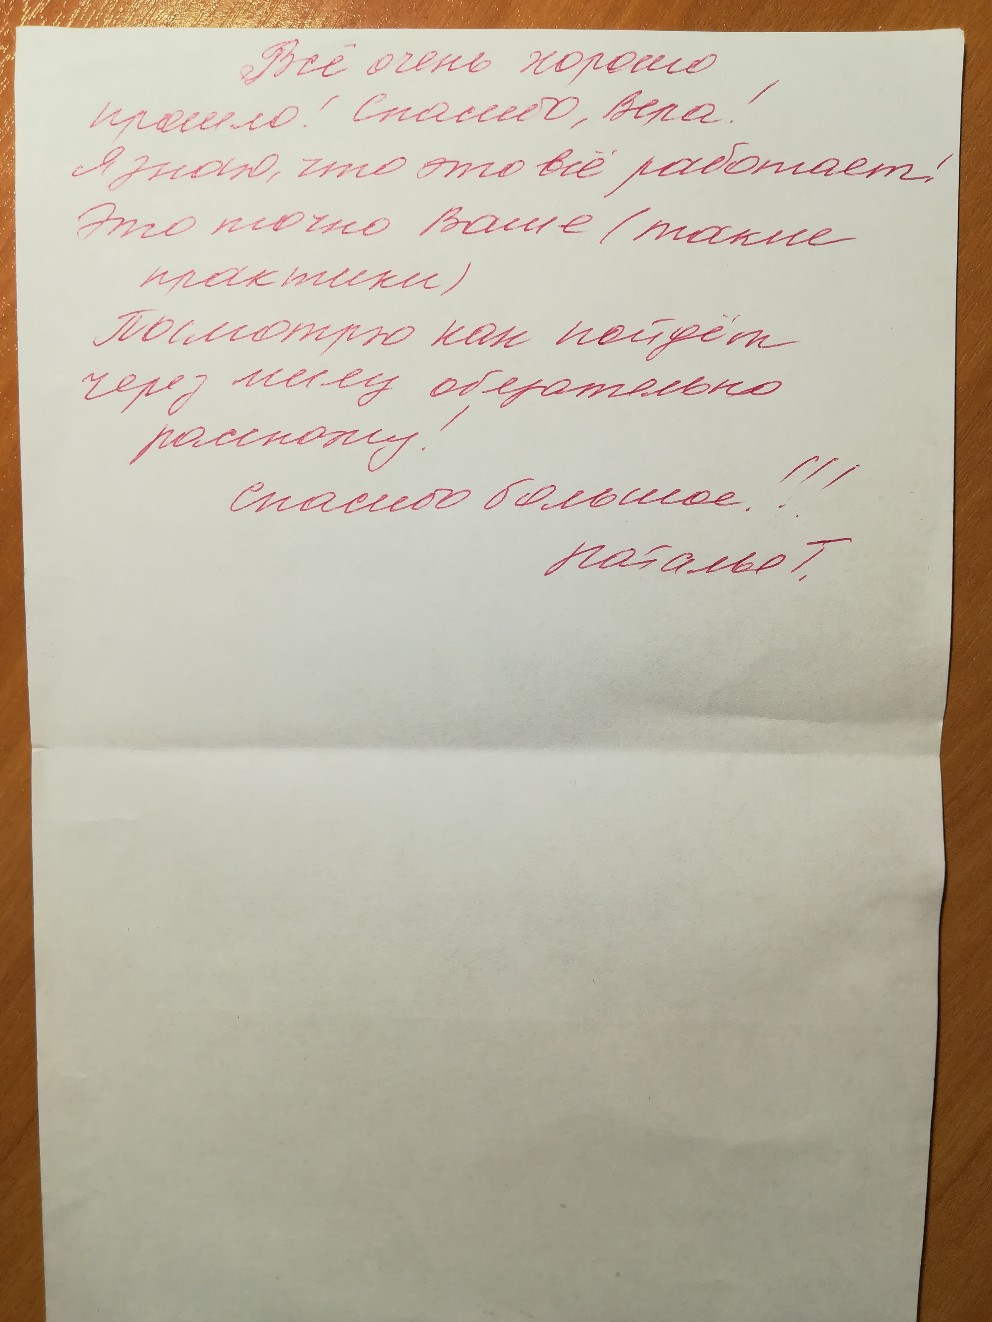 Всё очень хорошо
прошло! Спасибо, Вера!
Я знаю, что это всё работает!
Это точно Ваше (такие
практики)
Посмотрю как пойдёт
через месяц обезательно
расскажу!
Спасибо большое!!!
Наталья Т.